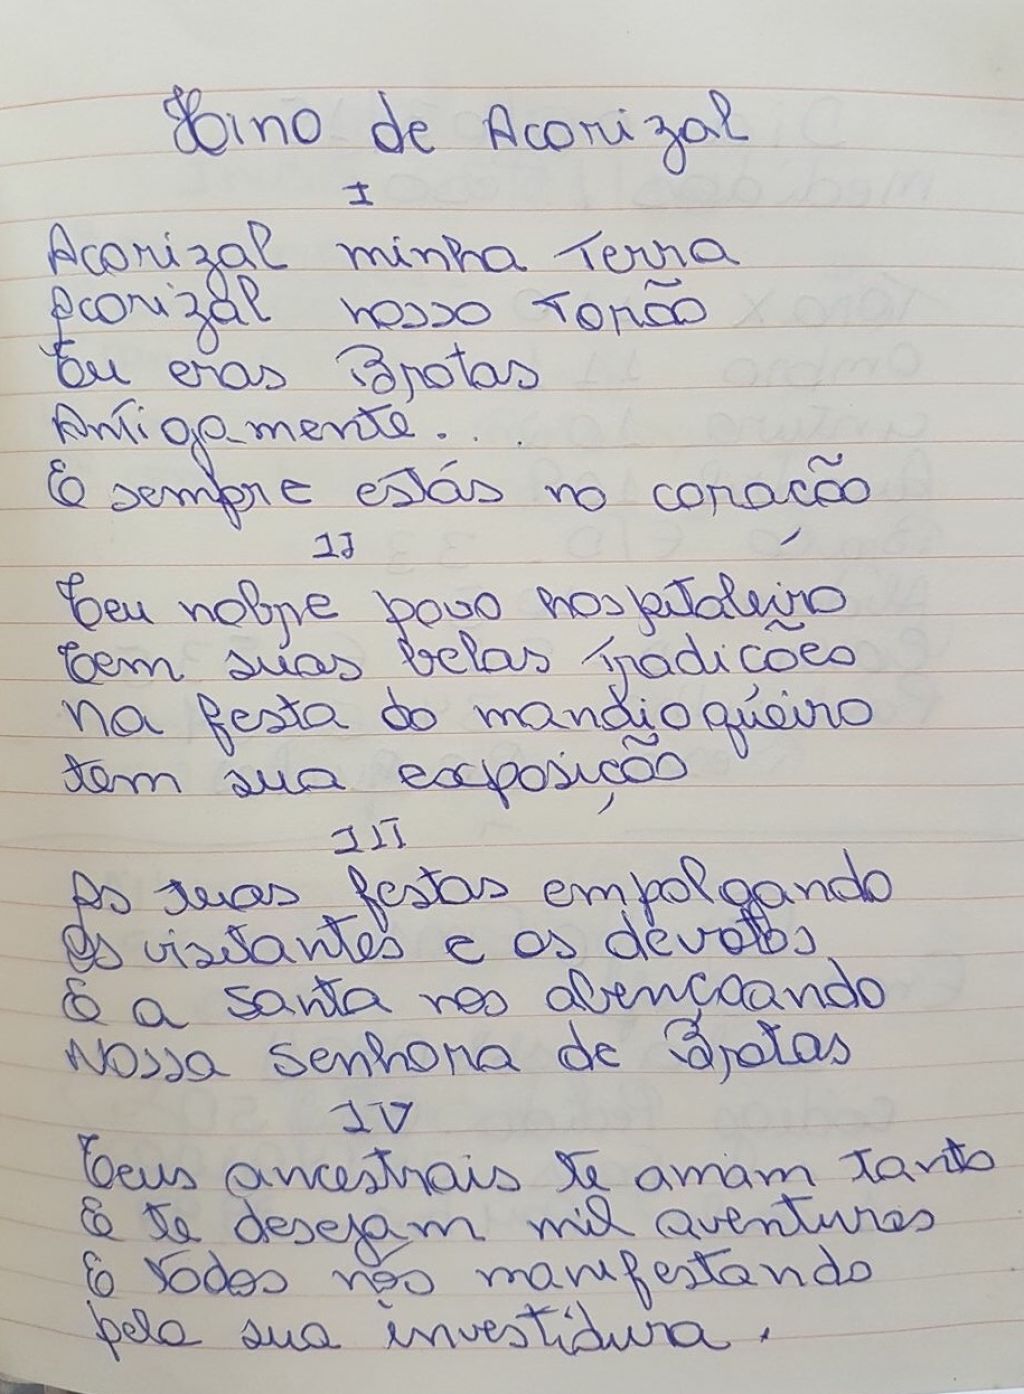 Hino de Acorizal
I
Acorizal minha Terra
Acorizal nosso Torrão
Tu eras Brotas
Antigamente...
E sempre estás no coração
II
Teu nobre povo hospitaleiro
Tem suas belas Tradições
Na festa do mandioqueiro
tem sua exposição
III
As tuas festas empolgando
Os visitantes e os devotos
E a Santa nos abençoando
Nossa Senhora de Brotas
IV
Teus ancestrais te amam tanto
E te desejam mil aventuras
E todos nós manifestando
pela sua investidura.